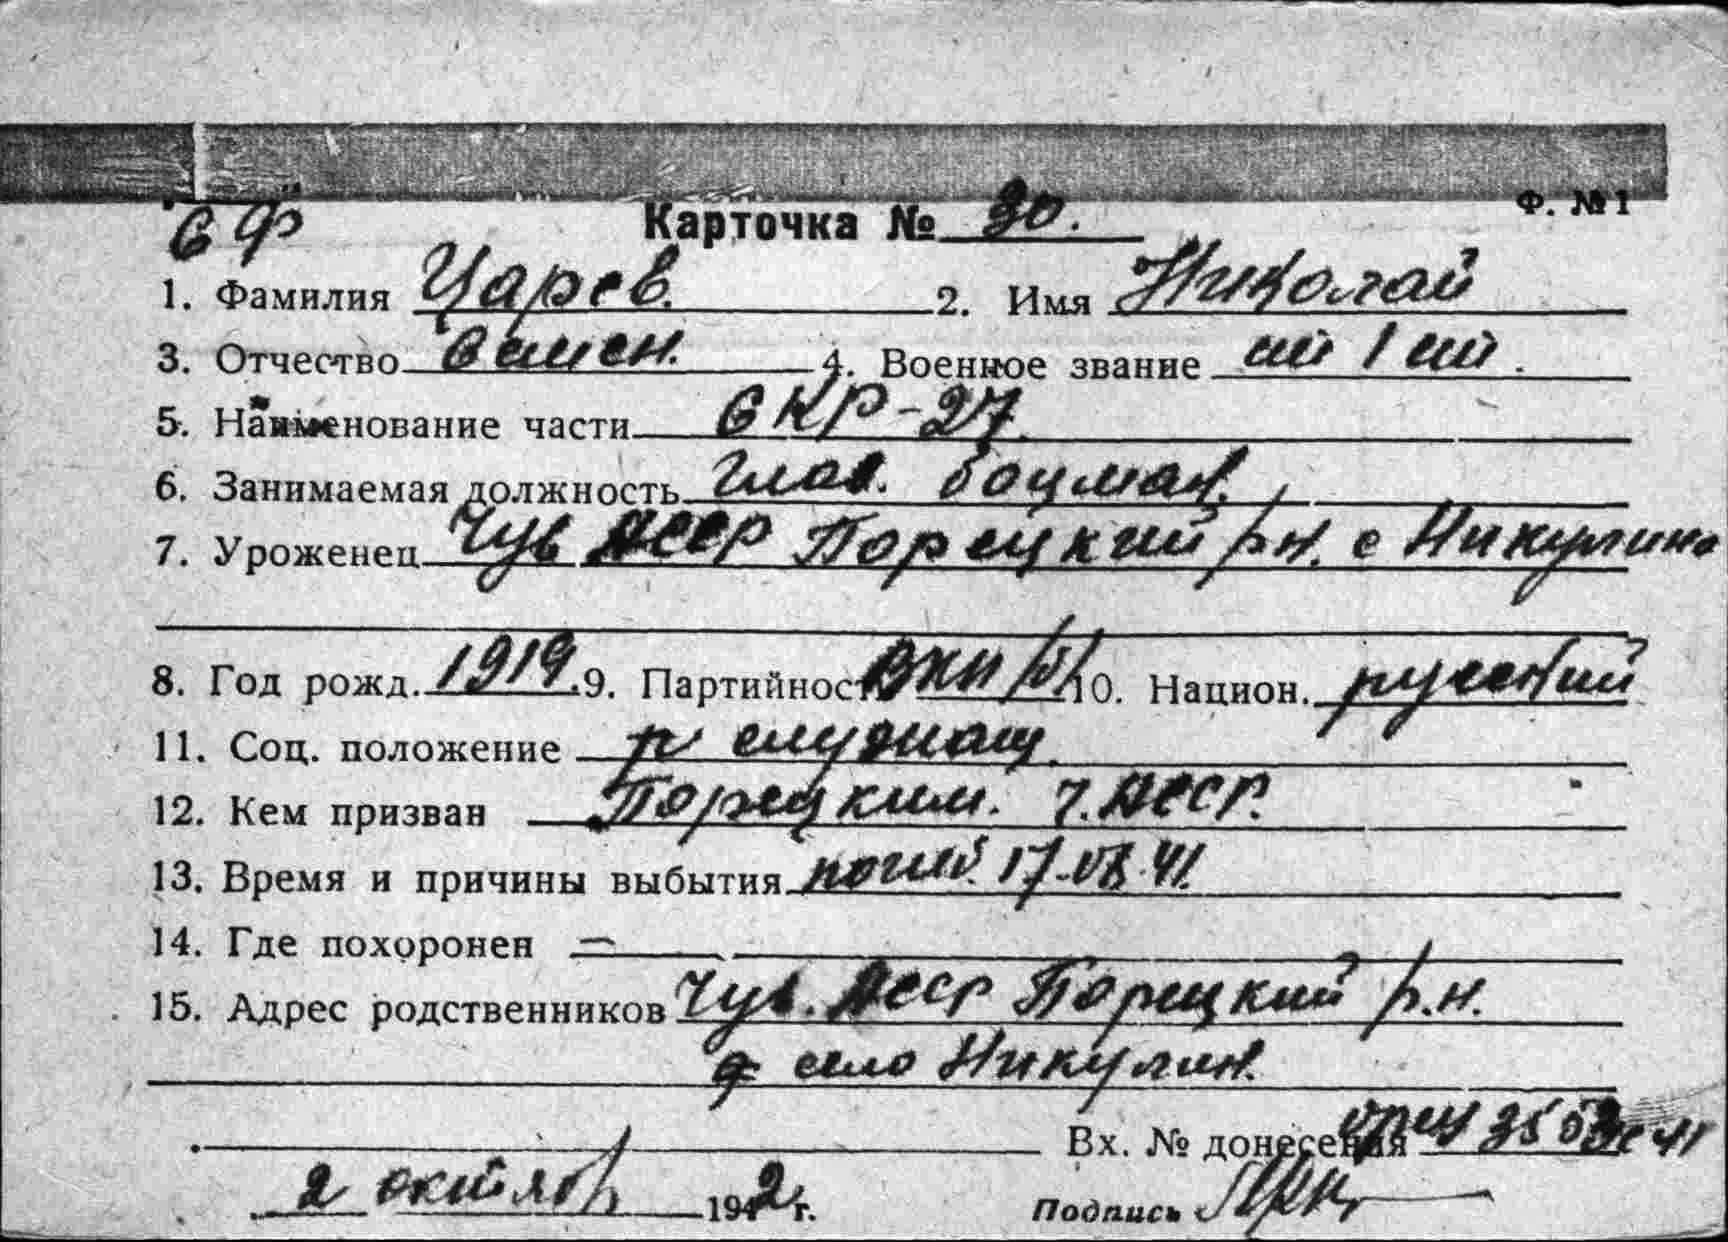 СФ
Ф. №1
Карточка № 30.
1. Фамилия Царев. 2. Имя Николай
3. Отчество Семен. 4. Военное звание
5. Наименование части СКР-27.
6. Занимаемая должность Глав. боцман.
7. Уроженец Чув АССР Порецкий р.н. с Никулино
8. Год рожд. 1919. 9. Партийность ВКП/б/ 10. Национ. русский
11. Соц. положение р служащ.
12. Кем призван Порецким. Ч.АССР.
13. Время и причины выбытия погиб. 17.08.41.
14. Где похоронен —
15. Адрес родственников Чув. АССР Порецкий р.н.
село Никулин.
Вх. № донесения
2 октября 1942 г. Подпись